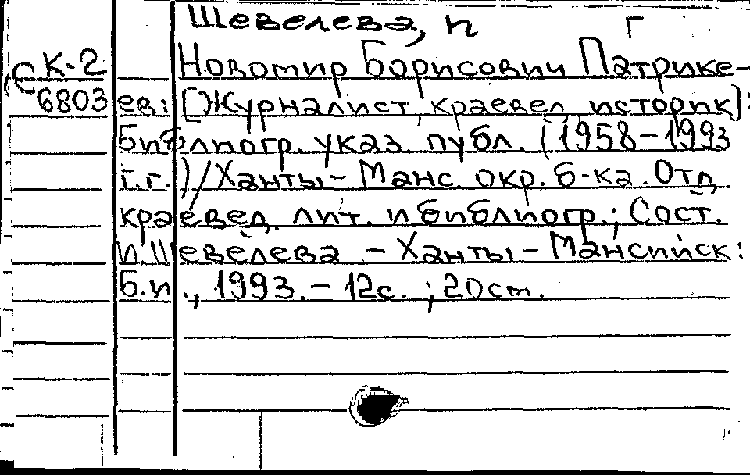 Шевелева, И Г
К-2 Новомир Борисович Патрике-
С 6803 ев: [Журналист, краевед, историк]:
Библиогр. указ. публ. (1958-1993
г.г.)/Ханты-Манс. окр. б-ка. Отд.
краевед. лит. и библиогр.; Сост.
И. Шевелева - Ханты-Мансийск:
Б.и., 1993. - 12с. ; 20см.